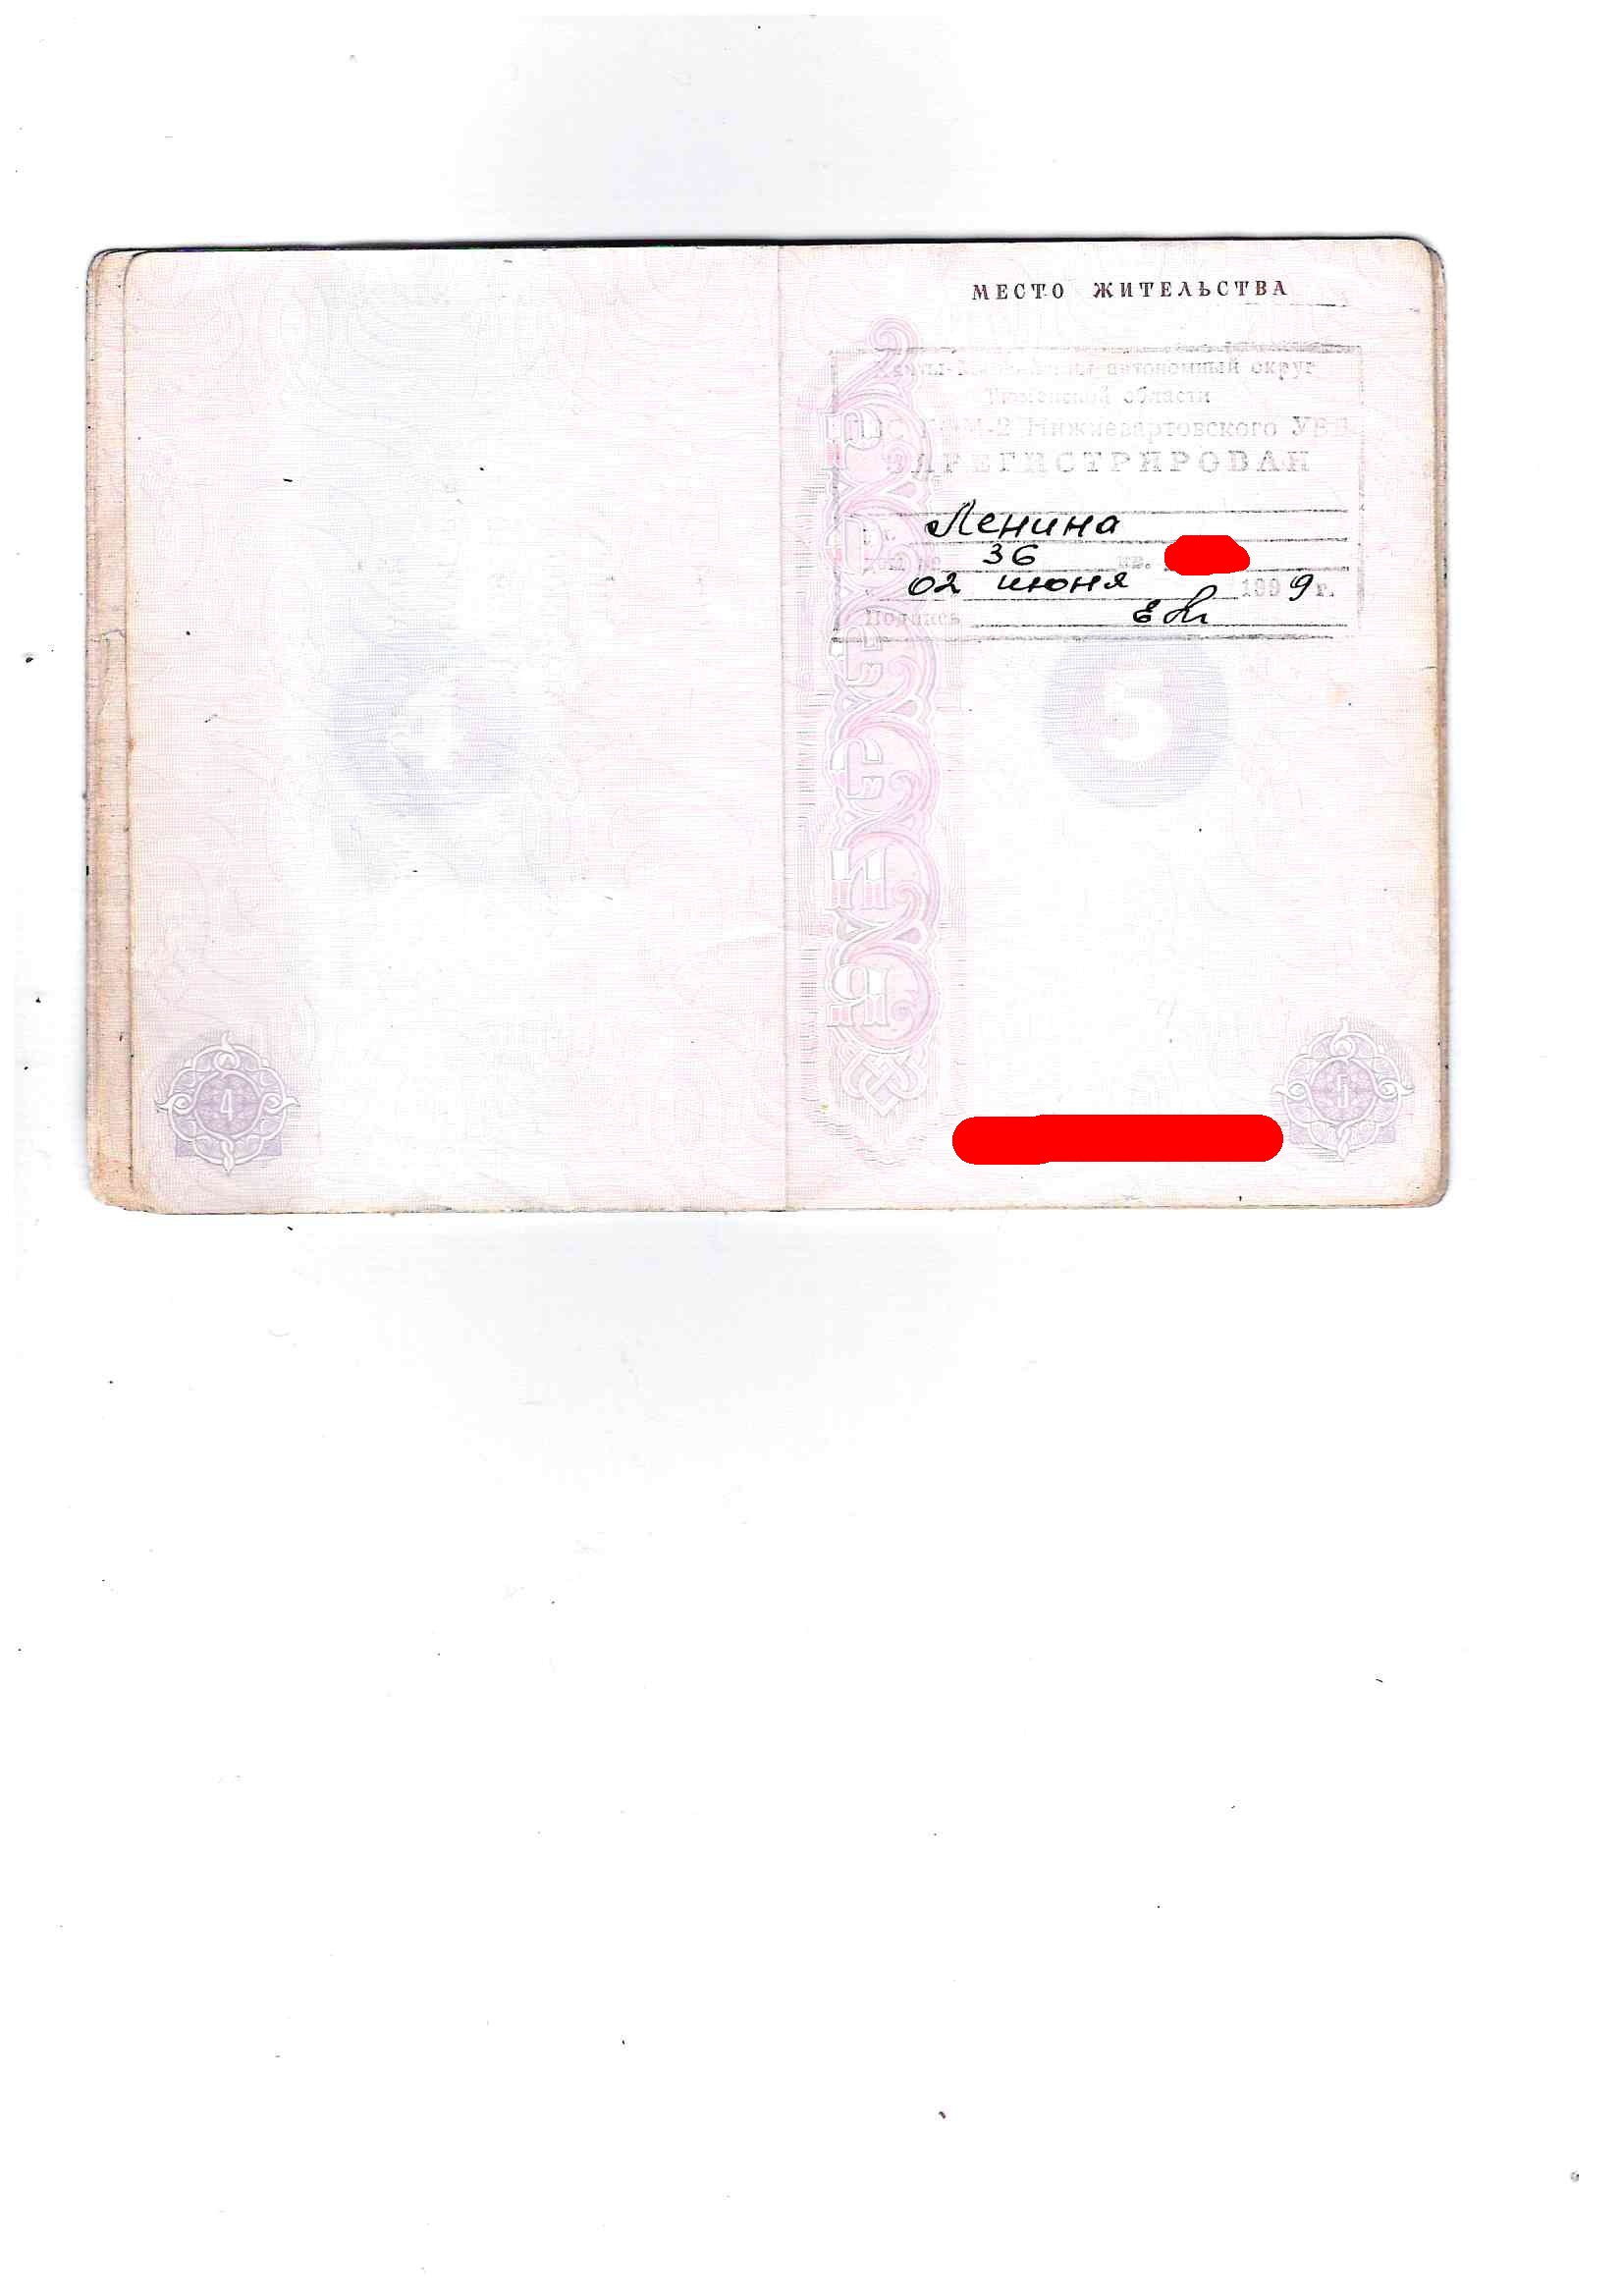 МЕСТО ЖИТЕЛЬСТВА
автономный округ
Тюменской области
Нижневартовского УВД
ЗАРЕГИСТРИРОВАН
Ленина
36 кв.
02 июня 1999 г.
Подпись
РОССИЯ
5
4
5